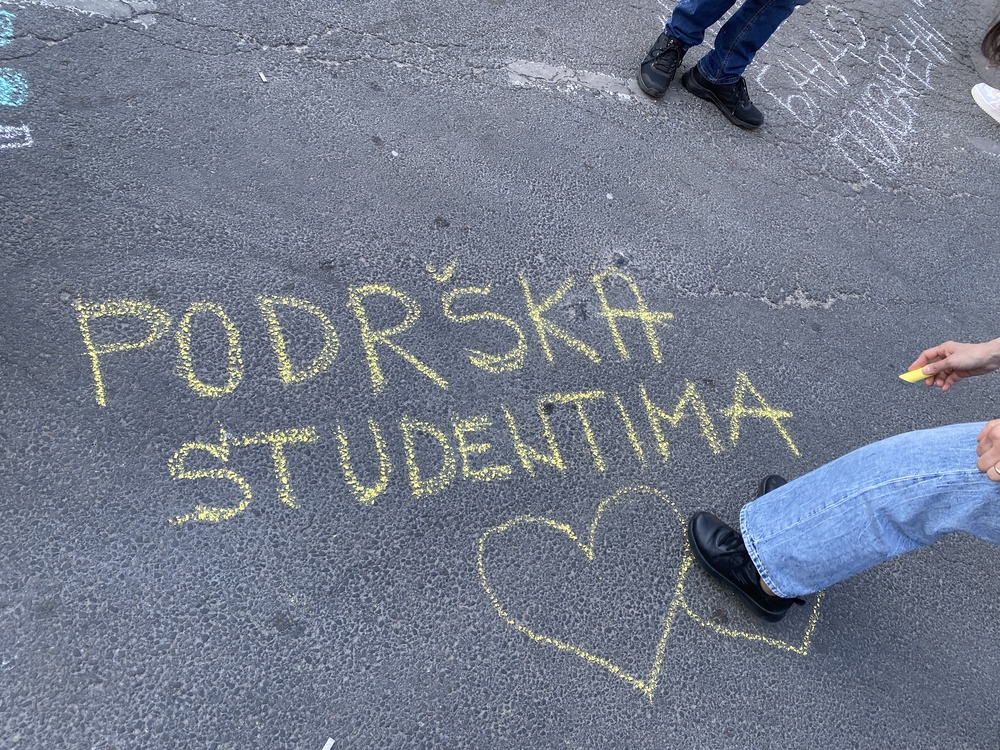 PODRŠKA
STUDENTIMA